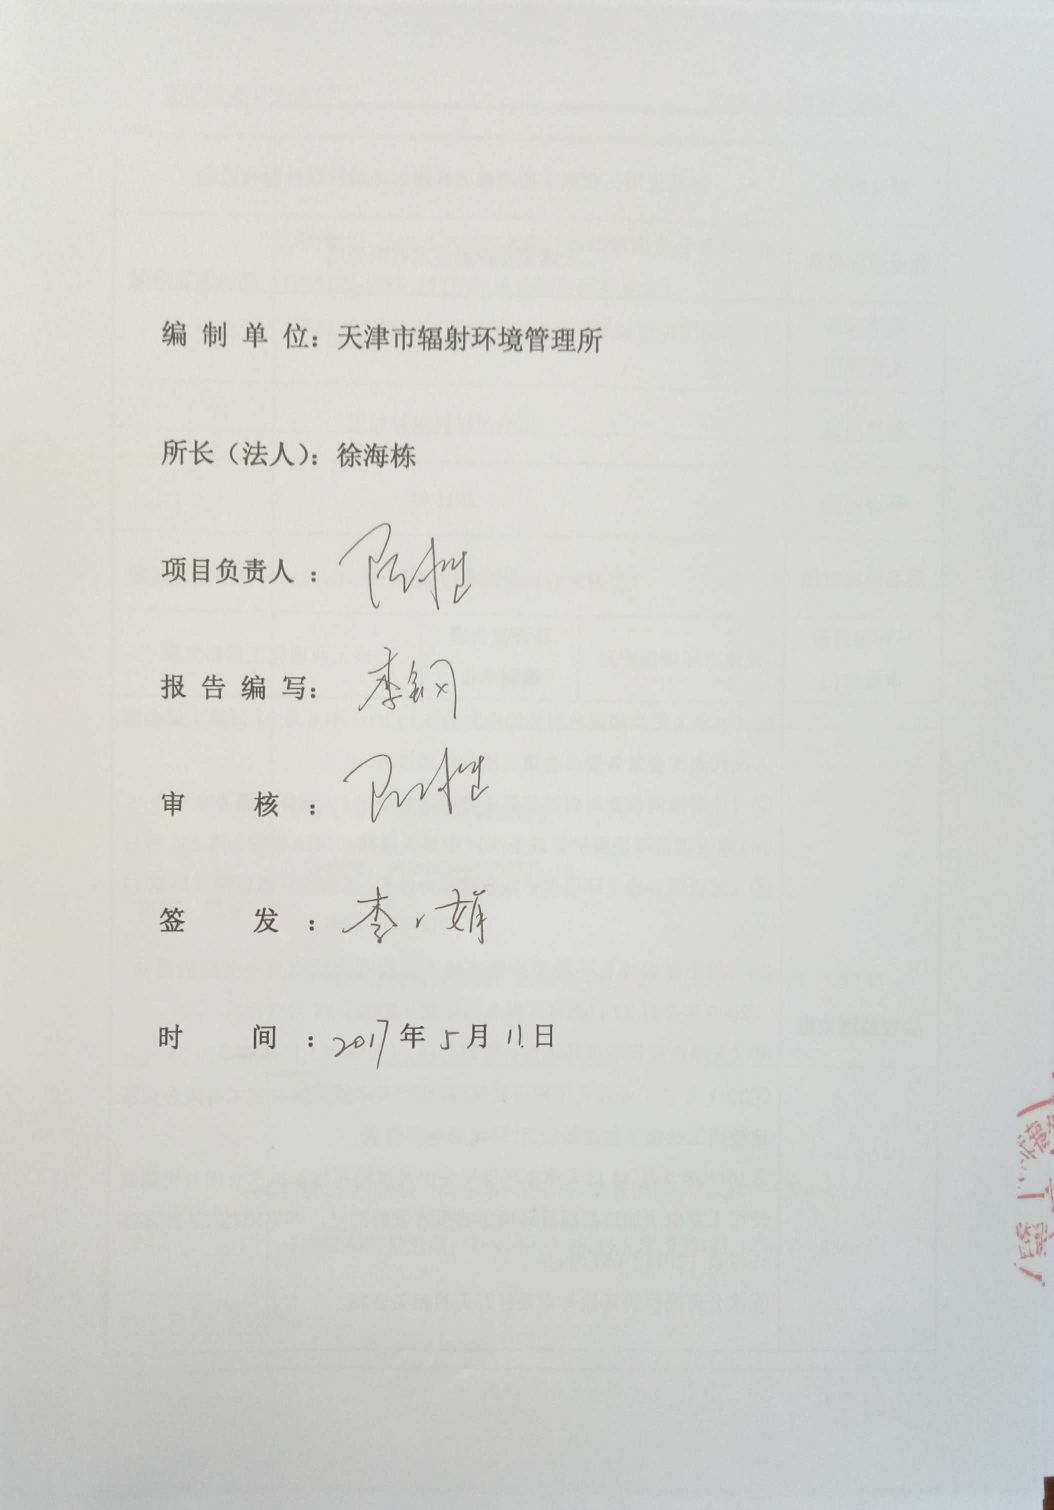 编 制 单 位：天津市辐射环境管理所
所长（法人）：徐海栋
项目负责人 ：
报 告 编 写：李钢
审 核 ：
签 发 ：李
时 间 ：2017 年 5 月 11 日